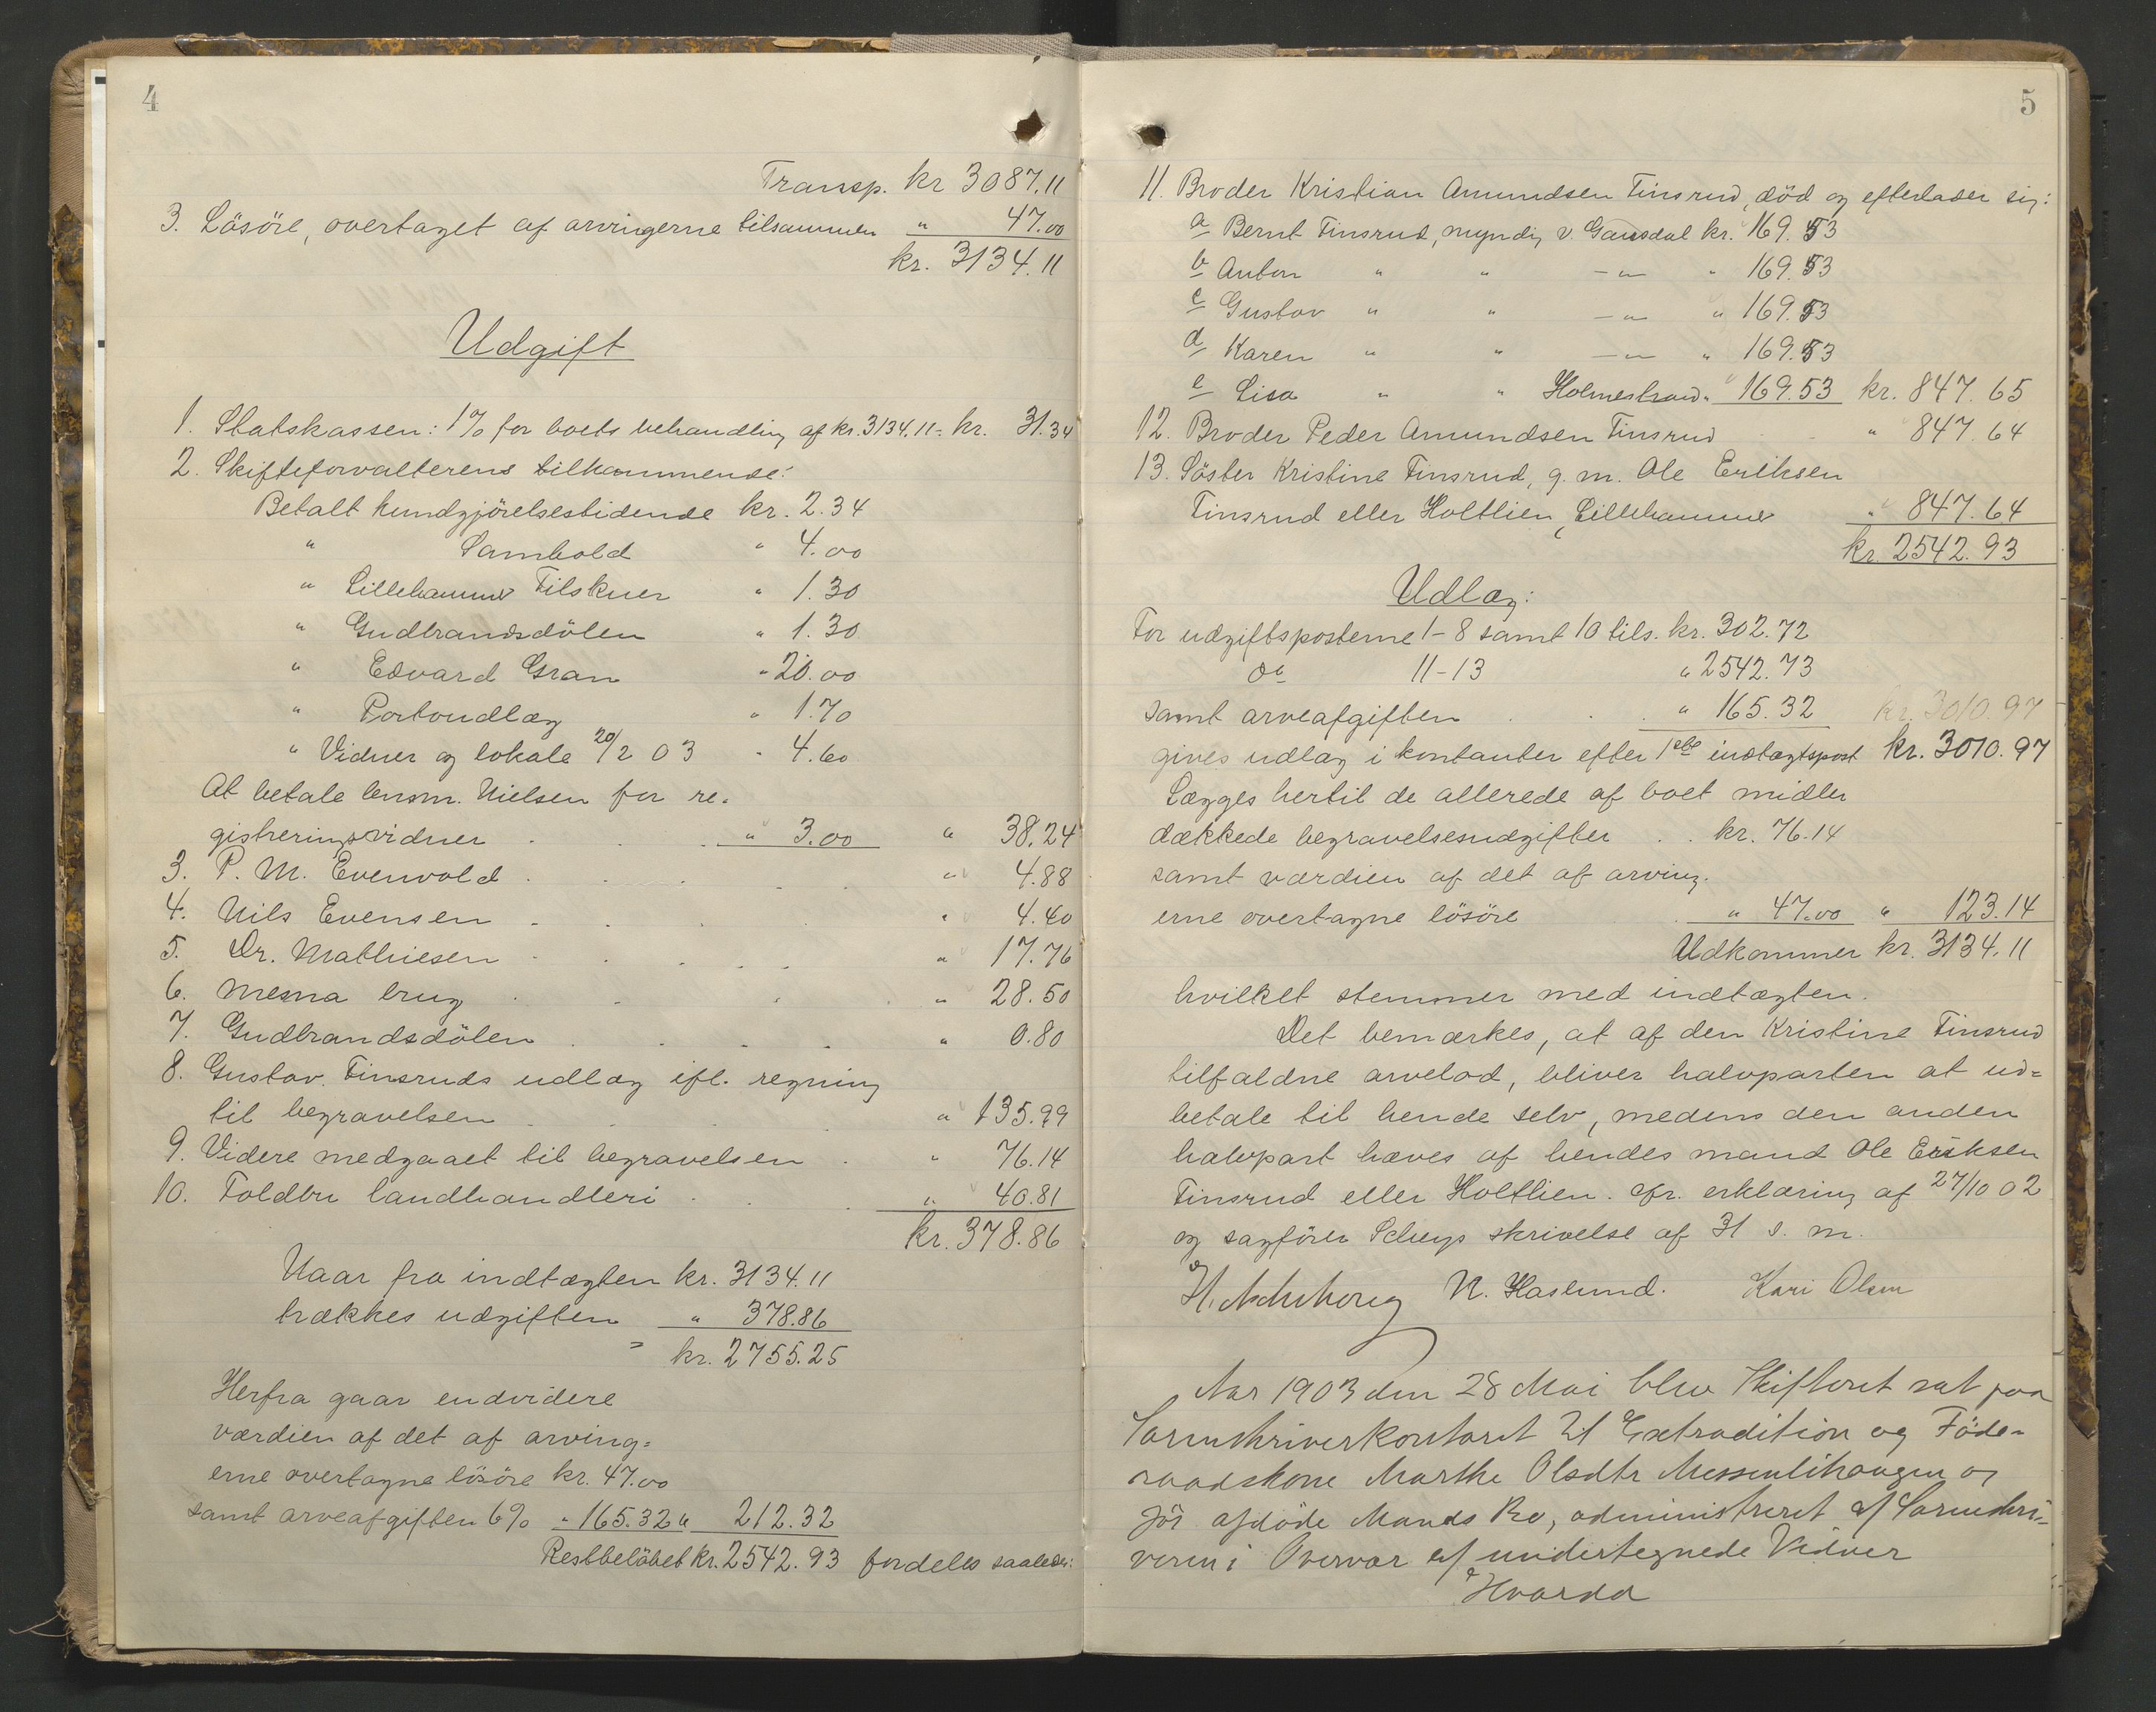 4
Transp. kr 3087.11
3. Lösöre, overtaget af arvingerne tilsammen " 47.00
kr. 3134.11
Udgift
1. Statskassen: 1% for boets behandling af kr. 3134.11 = kr. 31.34
2. Skifteforvalterens tilkommende:
Betalt kundgjörelsestidende kr. 2.34
" Samhold " 4.00
" Lillehammer Tilskuer " 1.30
" Gudbrandsdölen " 1.30
" Edvard Gran " 20.00
" Portoudlæg " 1.70
" Vidner og lokale 20/2 03 " 4.60
At betale lensm. Nielsen for re-
gistreringsvidner " 3.00 " 38.24
3. P. M. Evenvold " 4.88
4. Nils Evensen " 4.40
5. Dr. Mathiesen " 17.76
6. Mesna brug " 28.50
7. Gudbrandsdölen " 0.80
8. Gustav Tinsruds udlæg ifl. regning
til begravelsen " 135.99
9. Videre medgaaet til begravelsen " 76.14
10. Foldbu landhandleri " 40.81
kr. 378.86
Naar fra indtægten kr. 3134.11
trækkes udgiften " 378.86
= kr. 2755.25
Herfra gaar endvidere
værdien af det af arving=
erne overtagne lösöre kr. 47.00
samt arveafgiften 6% " 165.32 " 212.32
Restbelöbet kr. 2542.93 fordeles saaledes:
5
11. Broder Kristian Amundsen Tinsrud, död og efterlader sig:
a Bernt Tinsrud, myndig v. Gausdal kr. 169.53
b Anton " " -"- " 169.53
c Gustav " " -"- " 169.53
d Karen " " -"- " 169.53
e Lisa " " Holmestrand " 169.53 kr. 847.65
12. Broder Peder Amundsen Tinsrud " 847.64
13. Söster Kristine Tinsrud, g. m. Ole Eriksen
Tinsrud eller Holtlien, Lillehammer " 847.64
kr. 2542.93
Udlæg:
For udgiftsposterne 1-8 samt 10 tils. kr. 302.72
do 11-13 " 2542.73
samt arveafgiften " 165.32 kr. 3010.97
gives udlæg i kontanter efter 1ste indtægtspost kr. 3010.97
Lægges hertil de allerede af boet midler
dækkede begravelsesudgifter kr. 76.14
samt værdien af det af arving-
erne overtagne lösöre " 47.00 " 123.14
Udkommer kr. 3134.11
hvilket stemmer med indtægten.
Det bemærkes, at af den Kristine Tinsrud
tilfaldne arvelod, bliver halvparten at ud=
betale til hende selv, medens den anden
halvpart hæves af hendes mand Ole Eriksen
Tinsrud eller Holtlien. cfr. erklæring af 27/10 02
og sagförer skrivelse af 31 s. m.
N. Haslund. Kari Olsen
Aar 1903 den 28 Mai blev Skifteret sat paa
Sorenskriverkontoret til Extradition og Föde-
raadskone Marthe Olsdtr Messenlihaugen og
för afdöde Mands Bo, administreret af Sorenskri-
veren i Overvær af undertegnede Vidner
Hvorda